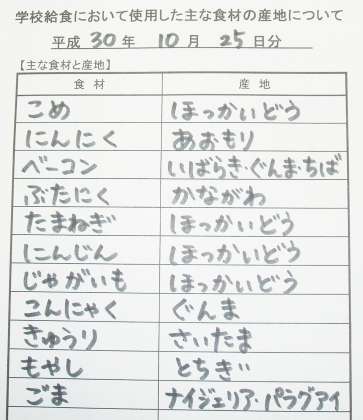 学校給食において使用した主な食材の産地について
平成 30 年 10 月 25 日分
【主な食材と産地】
食材 産地
こめ ほっかいどう
にんにく あおもり
ベーコン いばらき・ぐんま・ちば
ぶたにく かながわ
たまねぎ ほっかいどう
にんじん ほっかいどう
じゃがいも ほっかいどう
こんにゃく ぐんま
きゅうり さいたま
もやし とちぎ
ごま ナイジェリア・パラグアイ